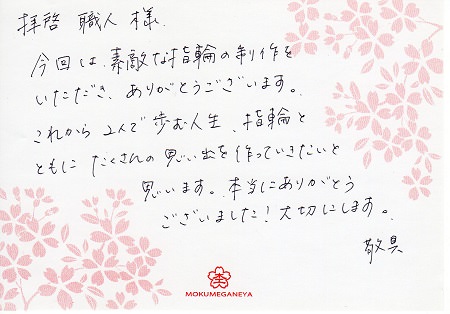 拝啓 職人 様.
今回は、素敵な指輪の制作を
いただき、ありがとうございます。
これから 2人で歩む人生、指輪と
ともに たくさんの思い出を作っていきたいと
思います。本当にありがとう
ございました！大切にします。
敬具
MOKUMEGANEYA